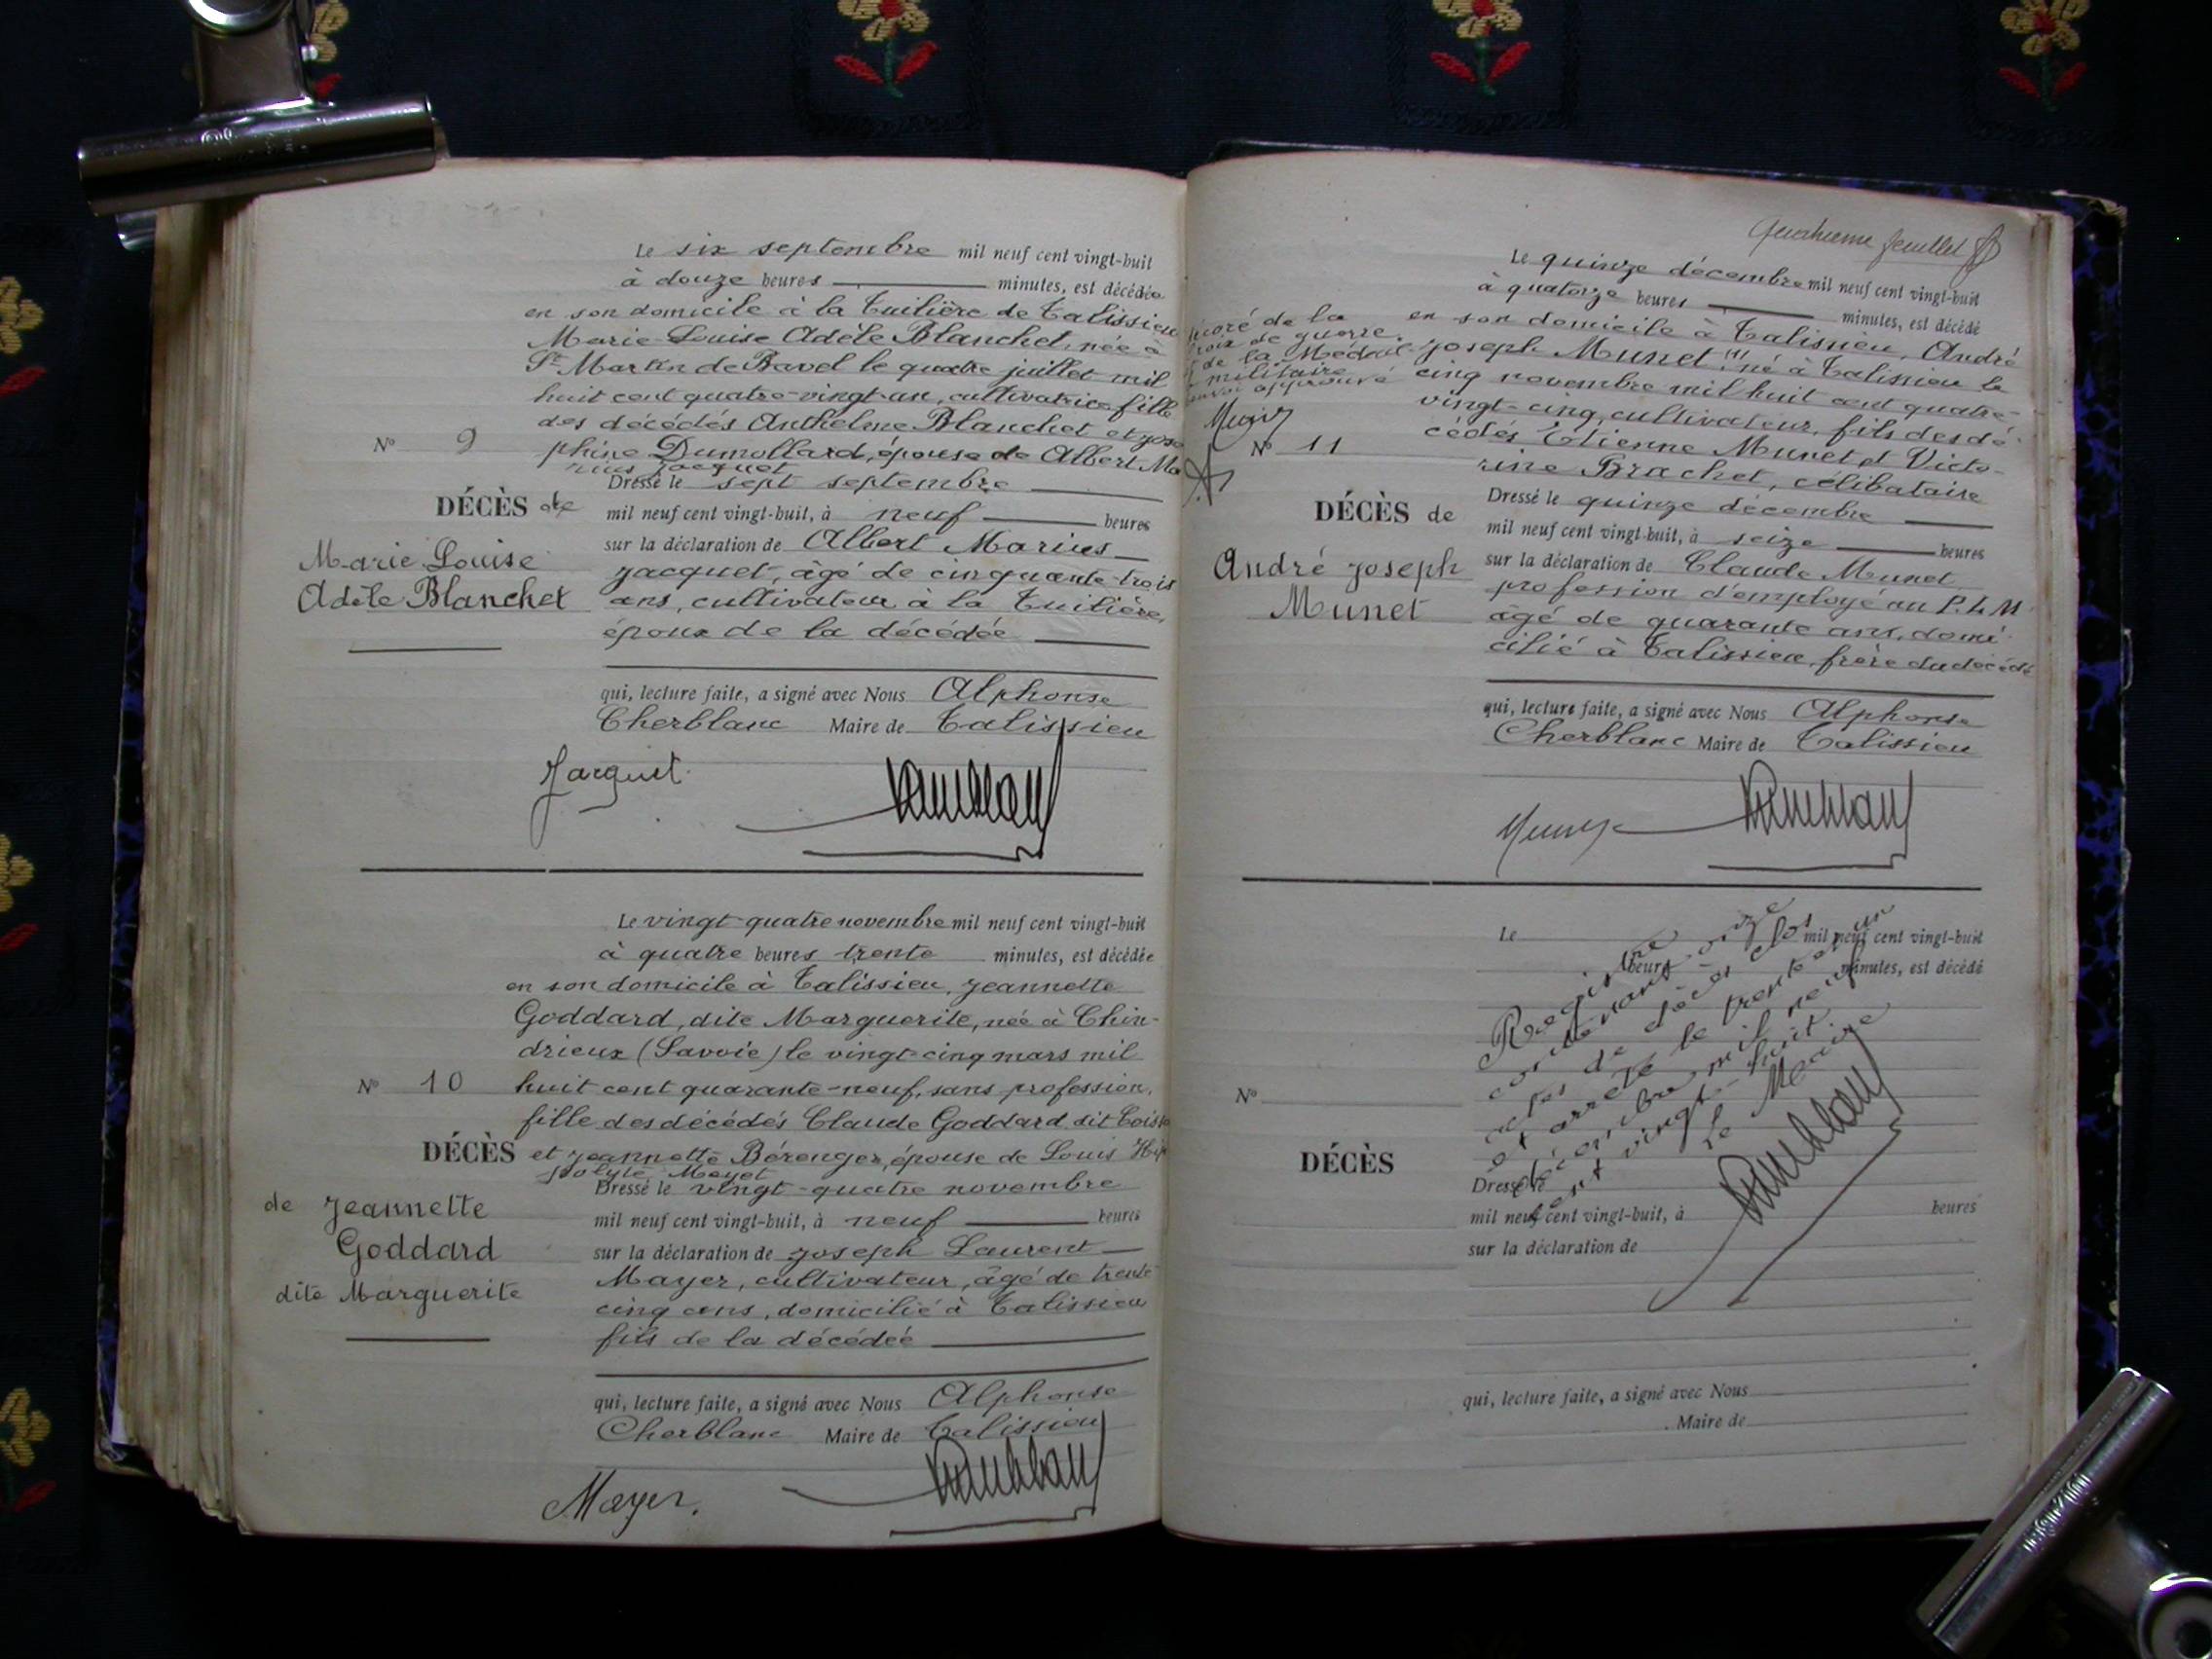 Le six septembre mil neuf cent vingt-huit
à douze heures minutes, est décédée
en son domicile à la Tuilière de Talissieu
Marie-Louise Adèle Blanchet, née à
St Martin de Bavel le quatre juillet mil
huit cent quatre-vingt-un, cultivatrice, fille
des décédés Anthelme Blanchet et José
phine Dumollard, épouse de Albert Ma
rius Jacquet
N° 9
DÉCÈS de
Marie Louise
Adèle Blanchet
Dressé le sept septembre
mil neuf cent vingt-huit, à neuf heures
sur la déclaration de Albert Marius
Jacquet, âgé de cinquante-trois
ans, cultivateur à la Tuilière,
époux de la décédée
qui, lecture faite, a signé avec Nous Alphonse
Cherblanc Maire de Talissieu
Jacquet
Le vingt-quatre novembre mil neuf cent vingt-huit
à quatre heures trente minutes, est décédée
en son domicile à Talissieu, Jeannette
Goddard, dite Marguerite, née à Chin-
drieux (Savoie) le vingt-cinq mars mil
huit cent quarante-neuf, sans profession,
fille des décédés Claude Goddard dit
et Jeannette Bérenger, épouse de Louis Hip
polyte Mayet
N° 10
DÉCÈS
de Jeannette
Goddard
dite Marguerite
Dressé le vingt-quatre novembre
mil neuf cent vingt-huit, à neuf heures
sur la déclaration de Joseph Laurent
Mayer, cultivateur, âgé de trente
cinq ans, domicilié à Talissieu
fils de la décédée
qui, lecture faite, a signé avec Nous Alphonse
Cherblanc Maire de Talissieu
Mayer.
feuillet
Le quinze décembre mil neuf cent vingt-huit
à quatorze heures minutes, est décédé
en son domicile à Talissieu, André
Joseph Munet (1) né à Talissieu le
cinq novembre mil huit cent quatre-
vingt-cinq, cultivateur, fils des dé-
cédés Etienne Munet et Victo-
rine Brachet, célibataire
décoré de la
croix de guerre
et de la Médail
militaire
renvoi approuvé
N° 11
DÉCÈS de
André Joseph
Munet
Dressé le quinze décembre
mil neuf cent vingt-huit, à seize heures
sur la déclaration de Claude Munet
profession d'employé au P.L.M
âgé de quarante ans, domi-
cilié à Talissieu, frère du décédé
qui, lecture faite, a signé avec Nous Alphonse
Cherblanc Maire de Talissieu
Le mil neuf cent vingt-huit
heures minutes, est décédé
N°
DÉCÈS
Dressé le
mil neuf cent vingt-huit, à heures
sur la déclaration de
Registre
contenant onze
actes de décès clos
et arrêté le trente et un
décembre mil neuf
cent vingt-huit
Le Maire
qui, lecture faite, a signé avec Nous
Maire de